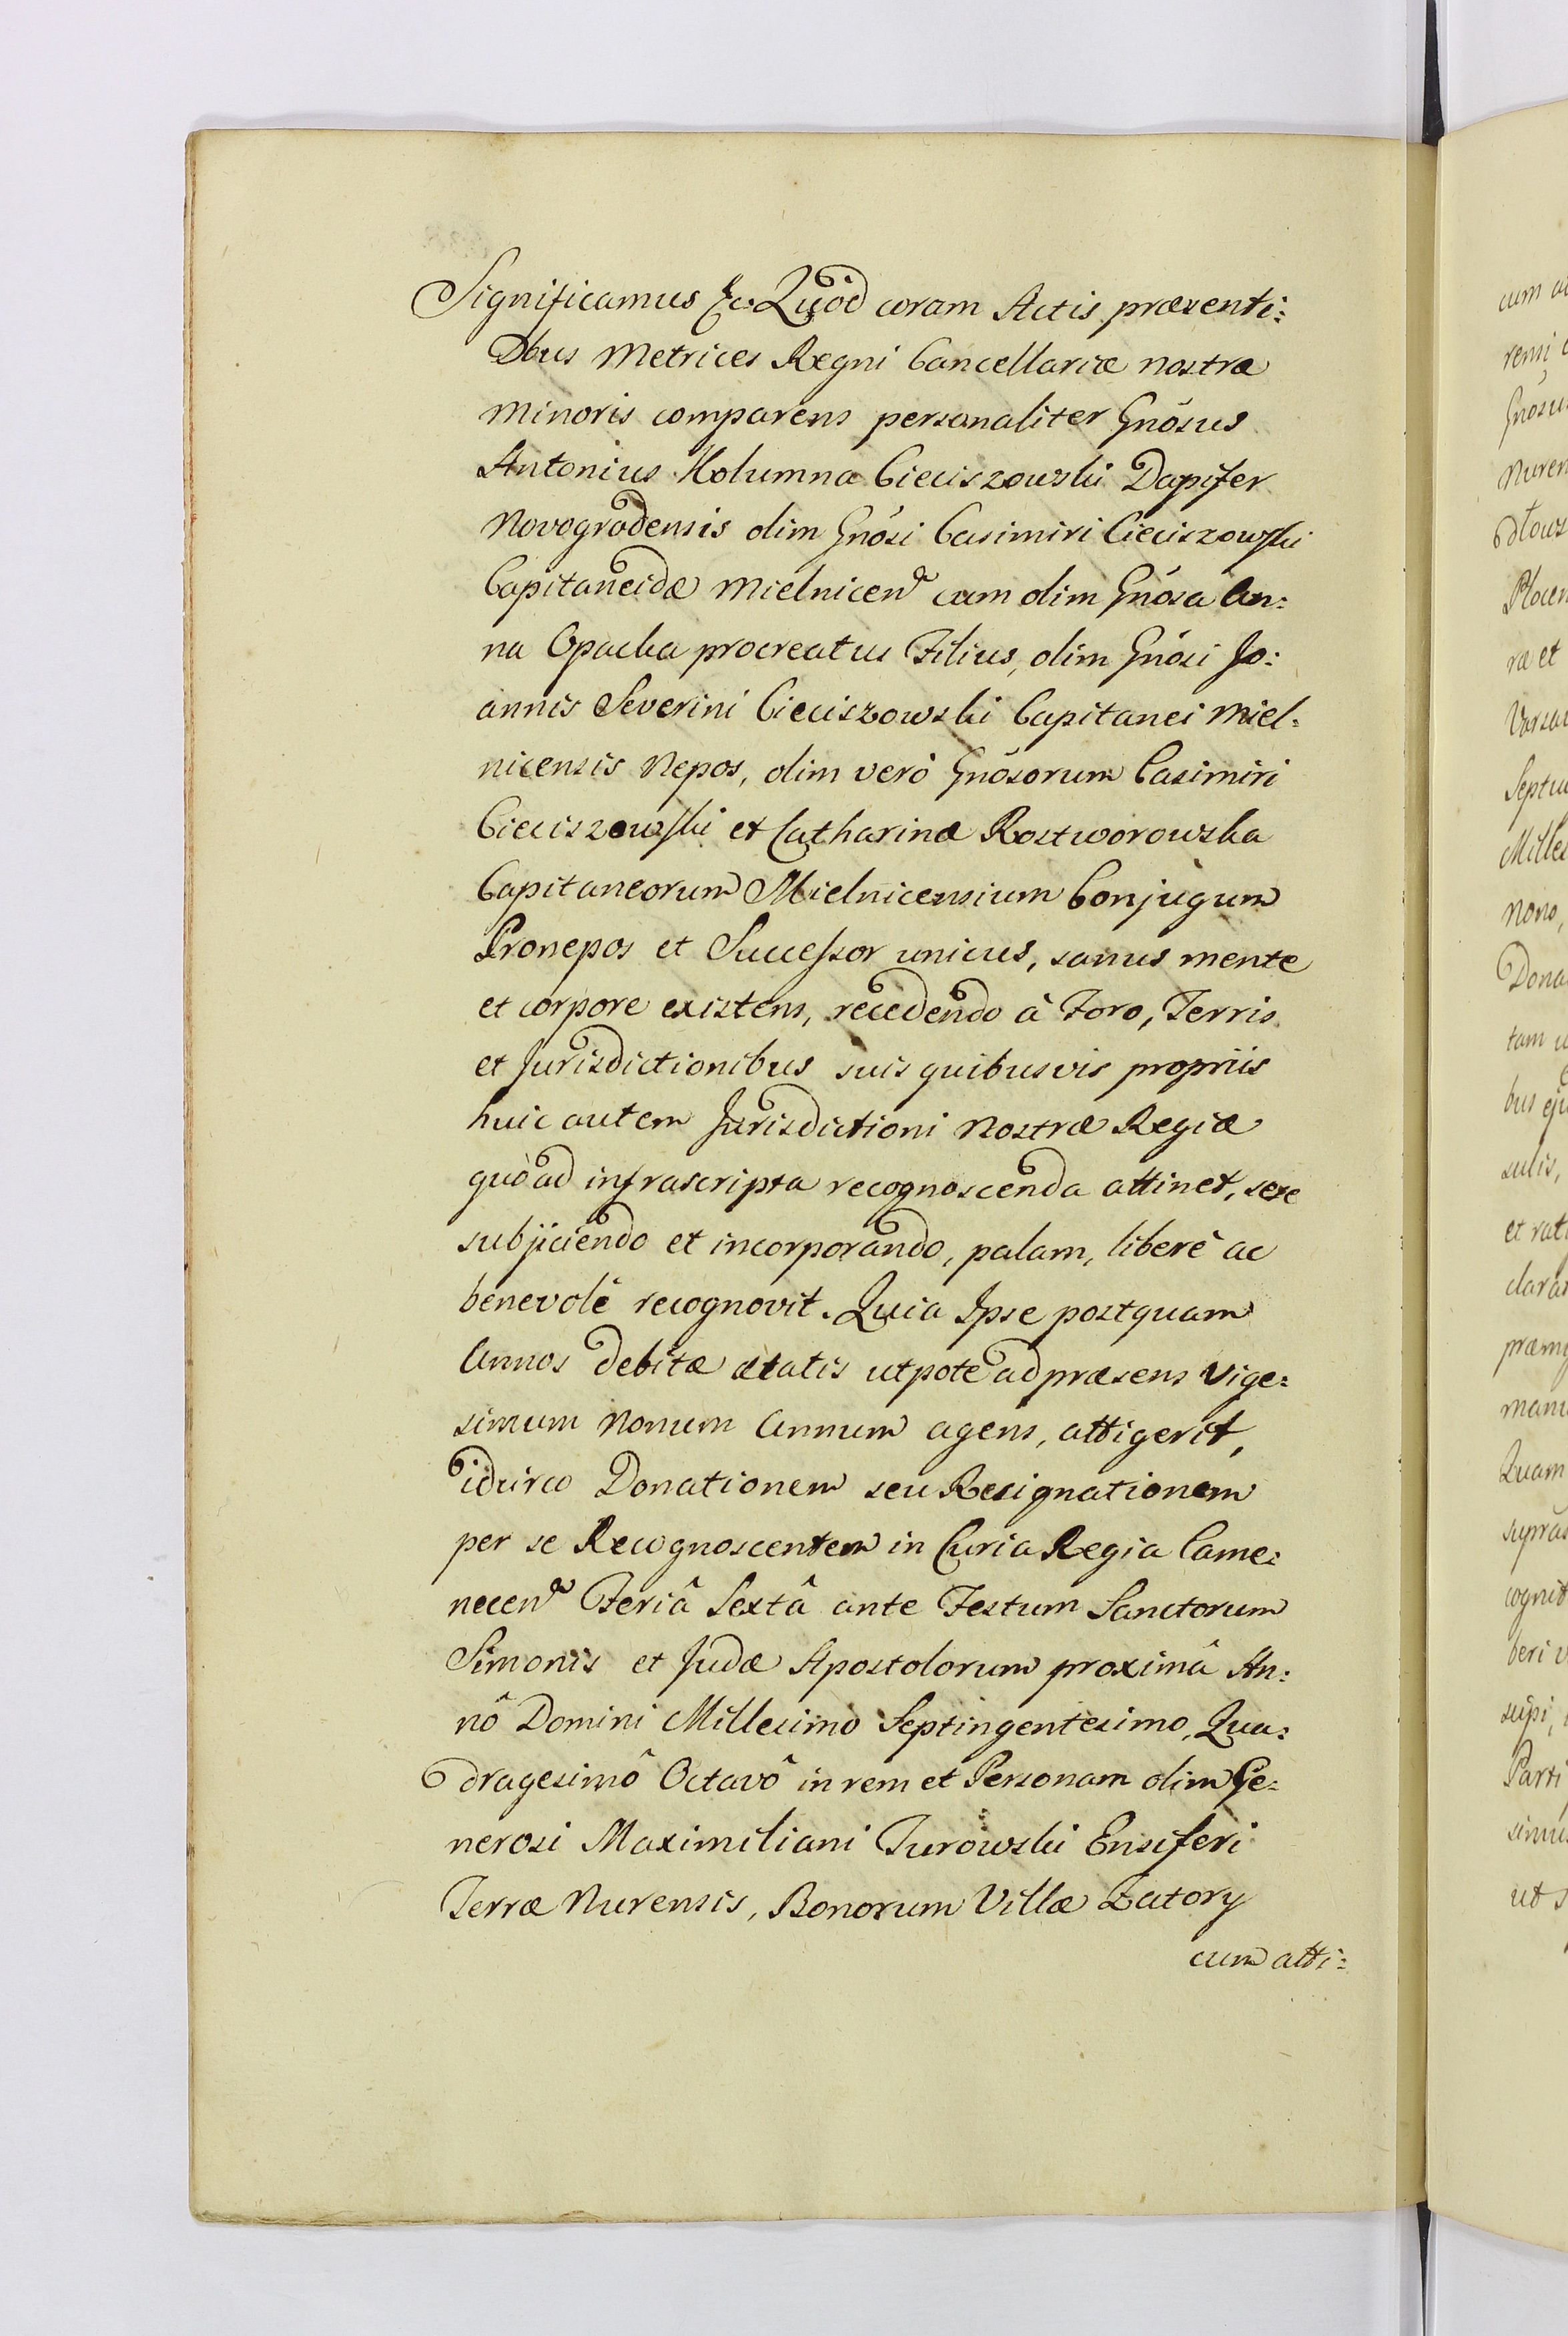 Significamus &c. Quòd coram Actis præsenti:
bus Metrices Regni Cancellariæ nostræ
minoris comparens personaliter Gnõsus
Antonius Kolumna Cieciszowski Dapifer
Novogrodensis olim Gnõsi Casimiri Cieciszowski
Capitaneidæ Mielnicen cum olim Gnõsa An:
na Opacka procreatus Filius, olim Gnõsi Jo:
annis Severini Cieciszowski Capitanei Miel:
nicensis Nepos, olim verò Gnõsorum Casimiri
Cieciszowski et Catharinæ Rostworowska
Capitaneorum Mielnicensium Conjugum
Pronepos et Successor unicus, sanus mente
et corpore existens, recedendo à Foro, Terris
et Jurisdictionibus suis quibusvis propriis
huic autem Jurisdictioni Nostræ Regiæ
quò ad infrascripta recognoscenda attinet, sese
subjiciendo et incorporando, palam, liberè ac
benevolè recognovit. Quia Ipse postquam
Annos debitæ ætatis utpotè ad præsens Vige:
simum Nonum Annum agens, attigerit,
idcirco Donationem seu Resignationem
per se Recognoscentem in Curia Regia Came:
necen Feriâ Sextâ ante Festum Sanctorum
Simonis et Judæ Apostolorum proximâ An:
nô Domini Millesimo Septingentesimo, Qua:
dragesimô Octavô in rem et Personam olim Ge:
nerosi Maximiliani Turowski Ensiferi
Terræ Nurensis, Bonorum Villæ Zatory
cum atti:
cum
Milles
nono,
Dona
tam
et rat
Quam
cognit
beri
Parti